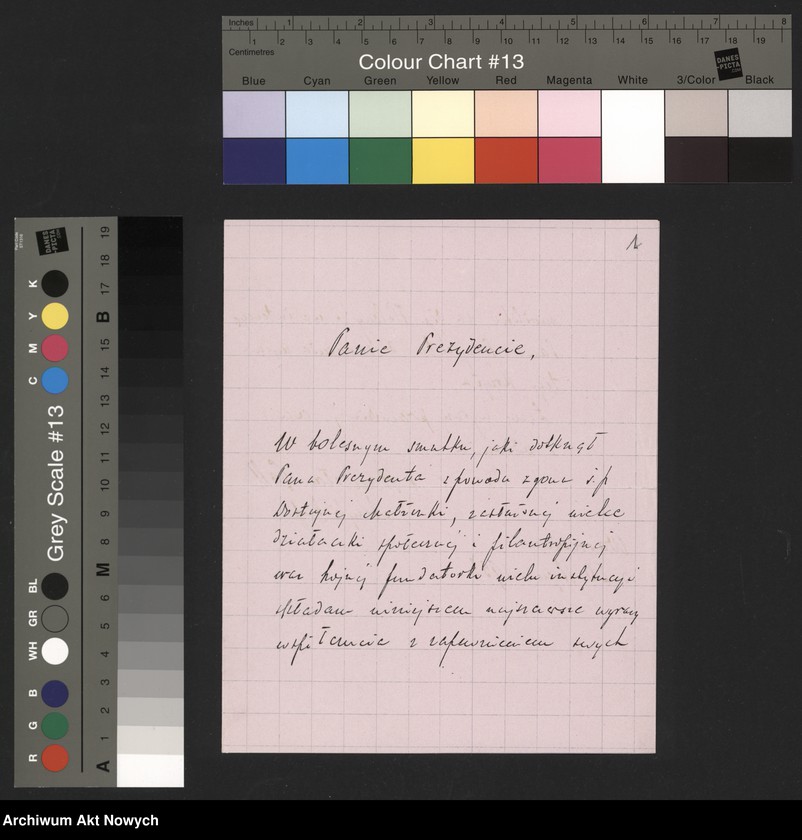 Inches 1 2 3 4 5 6 7 8
1 2 3 4 5 6 7 8 9 10 11 12 13 14 15 16 17 18 19
Centimetres
Colour Chart #13
DANES
-PICTA
.com
Blue Cyan Green Yellow Red Magenta White 3/Color Black
Grey Scale #13
DANES
-PICTA
.com
R G B WH GR BL C M Y K
A 1 2 3 4 5 6 M 8 9 10 11 12 13 14 15 B 17 18 19
1
Panie Prezydencie,
W bolesnym smutku, jaki dotknął
Pana Prezydenta z powodu zgonu ś.p
Dostojnej Małżonki, zasłużonej wielce
działaczki społecznej i filantropijnej
oraz hojnej fundatorki wielu instytucyj
składam niniejszem najszczersze wyrazy
współczucia z zapewnieniem swych
Archiwum Akt Nowych